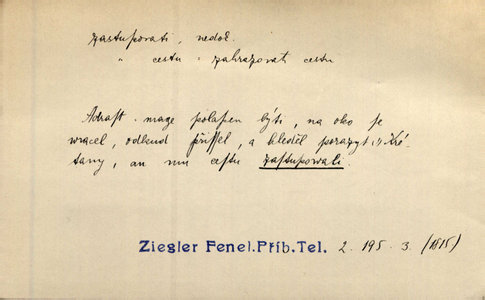 zastupovati, nedok.
" cestu : zahrazovati cestu
Adrast. mage polapen býti, na oko se
wracel, odkud přissel, a hleděl porazyti Kré-
tany, an mu cestu zastupowali.
Ziegler Fenel.Příb.Tel. 2. 195. 3. (1815)